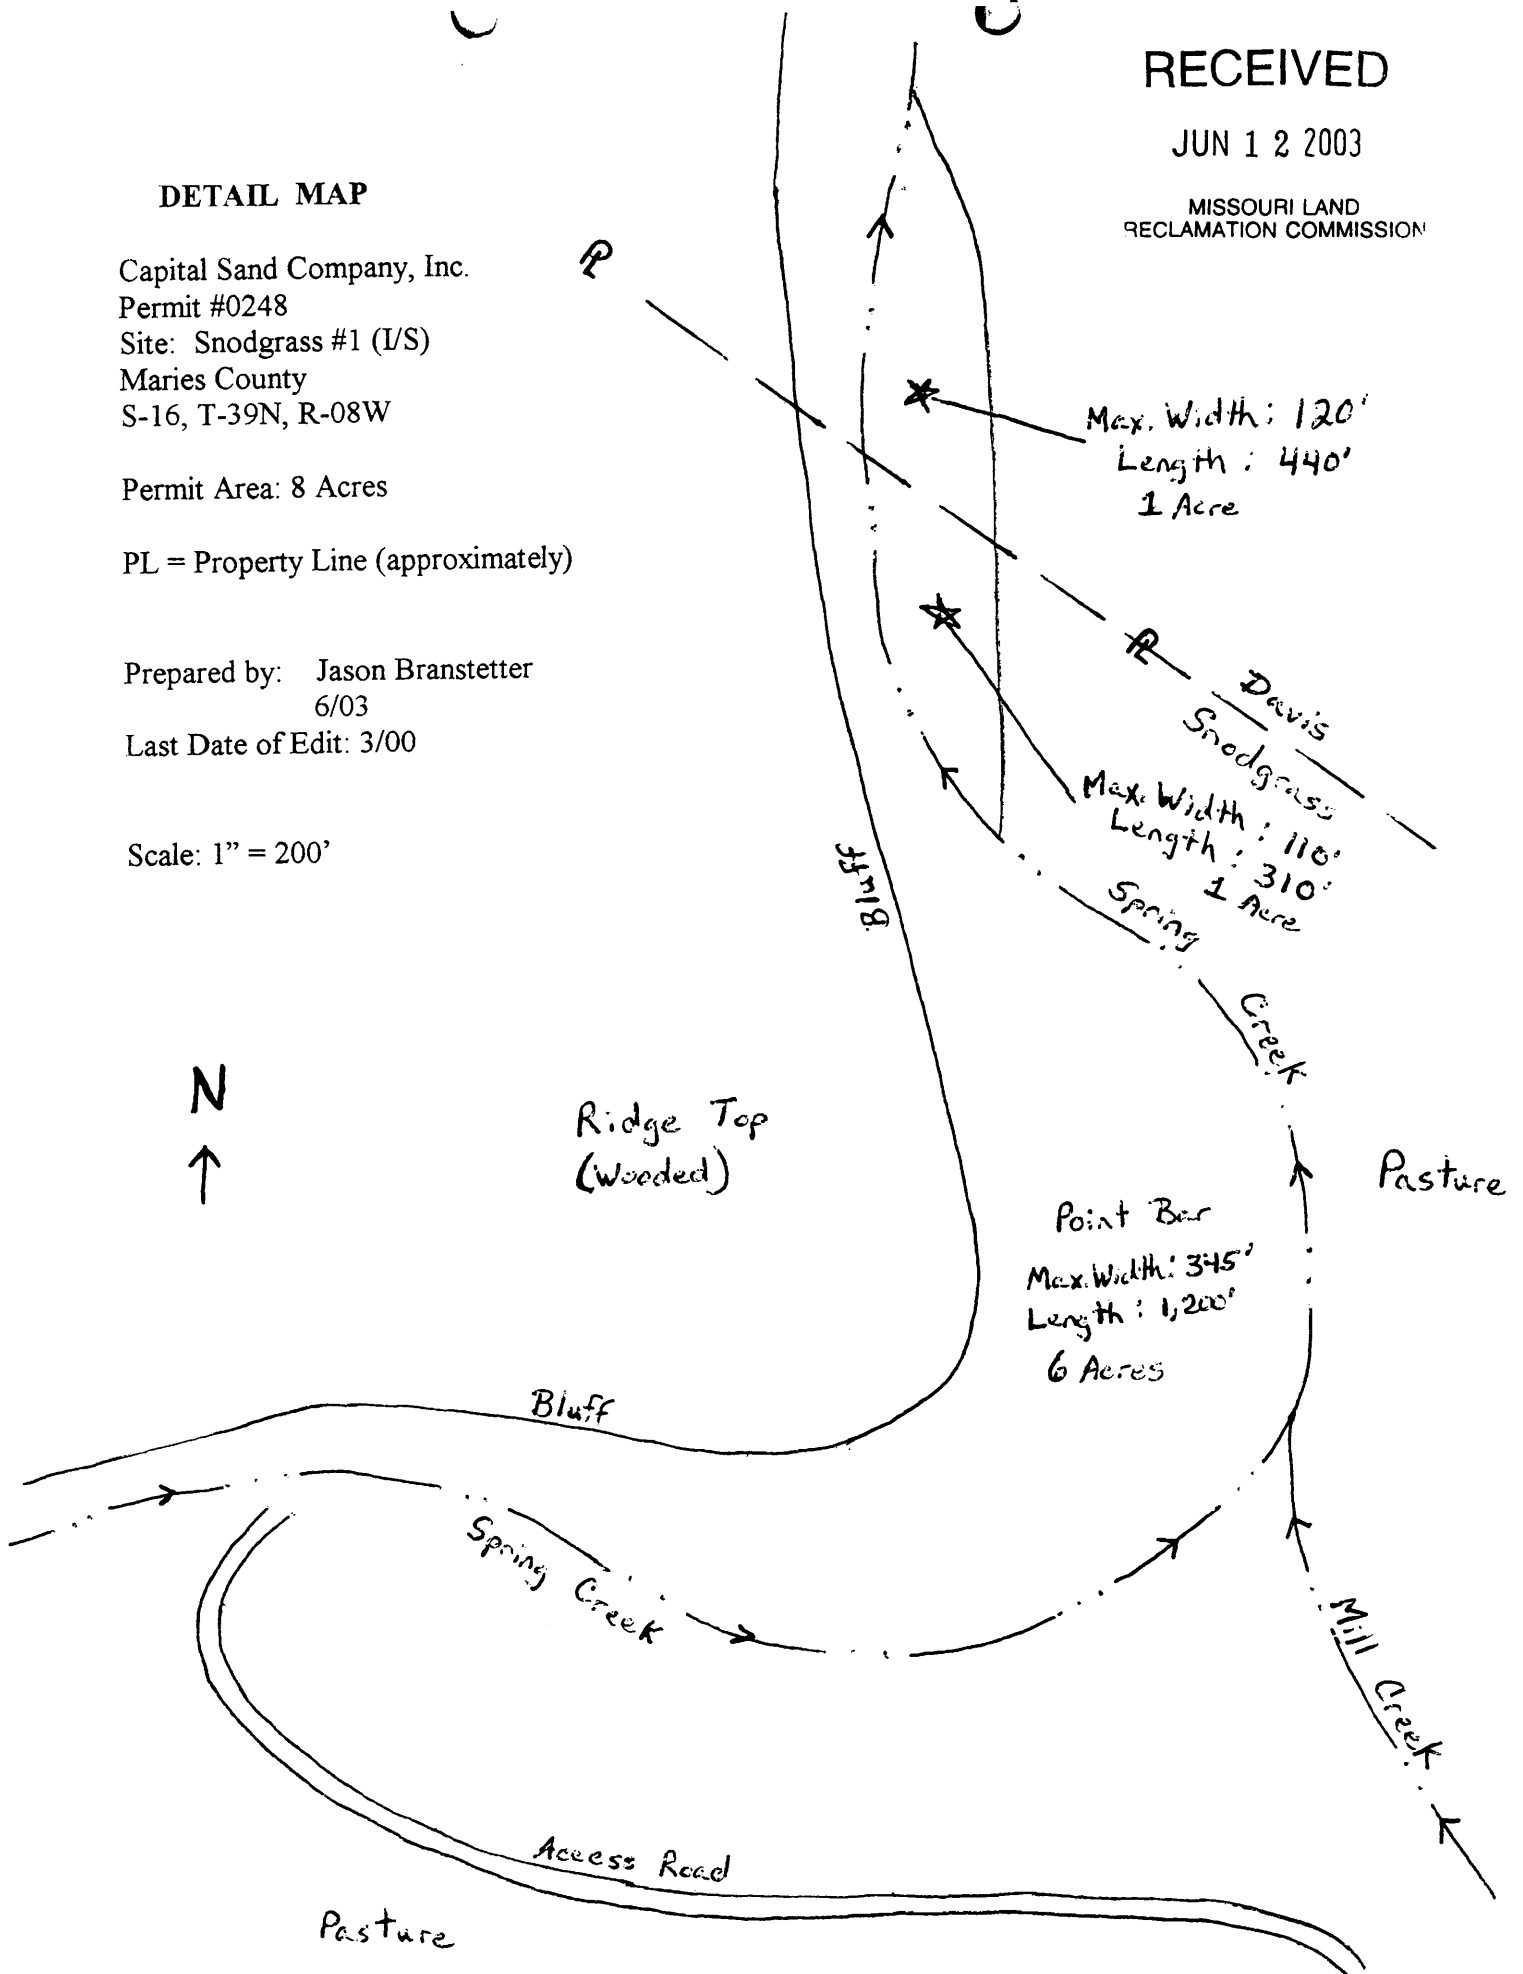 RECEIVED
JUN 1 2 2003
MISSOURI LAND
RECLAMATION COMMISSION
DETAIL MAP
Capital Sand Company, Inc.
Permit #0248
Site: Snodgrass #1 (I/S)
Maries County
S-16, T-39N, R-08W
Permit Area: 8 Acres
PL = Property Line (approximately)
Prepared by: Jason Branstetter
6/03
Last Date of Edit: 3/00
Scale: 1” = 200’
PL
Max. Width: 120'
Length: 440'
1 Acre
PL
Davis
Snodgrass
Max. Width: 110'
Length: 310'
1 Acre
Bluff
Spring
Creek
N
Ridge Top
(Wooded)
Pasture
Point Bar
Max. Width: 345'
Length: 1,200'
6 Acres
Bluff
Spring Creek
Mill Creek
Access Road
Pasture